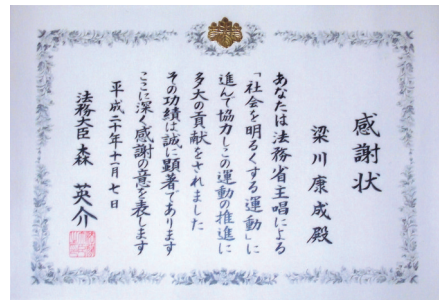 感謝状
梁川康成殿
あなたは法務省主唱による
「社会を明るくする運動」に
進んで協力しこの運動の推進に
多大の貢献をされました
その功績は誠に顕著であります
ここに深く感謝の意を表します
平成二十年十一月七日
法務大臣 森英介